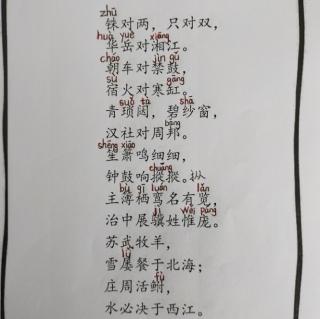 zhū
铢对两，只对双，
huà yuè xiāng
华岳对湘江。
cháo jìn gǔ
朝车对禁鼓，
sù gāng
宿火对寒缸。
suǒ tà shā
青琐闼，碧纱窗，
bāng
汉社对周邦。
shēng xiāo
笙箫鸣细细，
chuāng
钟鼓响摐摐。扒
bù qī luán lǎn
主薄栖鸾名有览，
jì wéi páng
治中展骥姓惟庞。
苏武牧羊，
lǚ
雪屡餐于北海；
fù
庄周活鲋，
水必决于西江。